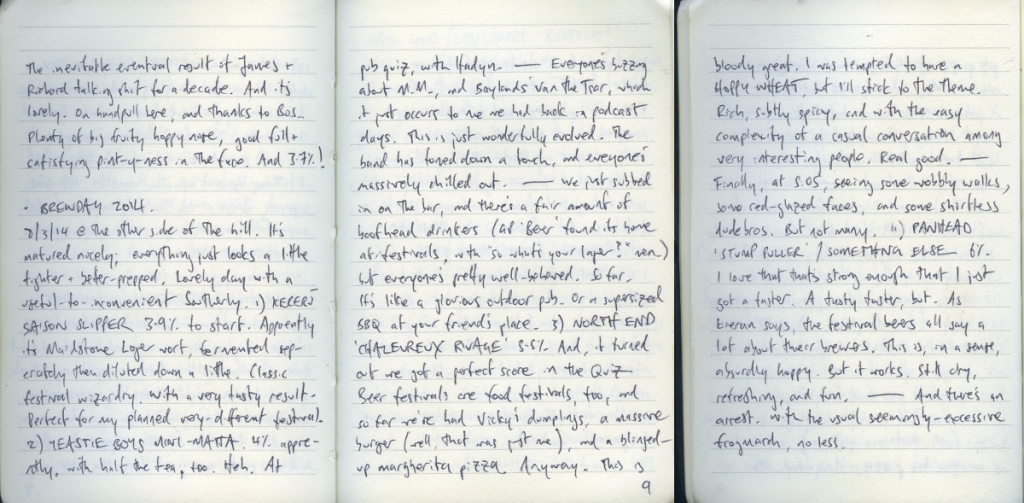 The inevitable eventual result of James +
Richard talking shit for a decade. And it's
lovely. On handpull here, and thanks to Bos..
Plenty of big fruity hoppy nose, good full +
satisfying pint-y-ness in the face. And 3.7%!
- BEERDAY 2014.
8/3/14 @ the other side of the hill. It's
matured nicely, everything just looks a little
tighter + better-prepped. Lovely day with a
useful-to-inconvenient Southerly. 1) KERERU
SAISON SLIPPER 3.9% to start. Apparently
it's Maidstone Lager wort, fermented sep-
erately then diluted down a little. Classic
festival wizardry. With a very tasty result.
Perfect for my planned very-different festival.
2) YEASTIE BOYS MINI-MATTA 4% appare-
ntly, with half the tea, too. Heh. At
pub quiz, with Hadyn. — Everyone's buzzing
about M.M., and Baylands Van the Tsar, which
it just occurs to me we had back in podcast
days. This is just wonderfully evolved. The
band has toned down a touch, and everyone's
massively chilled out. — We just subbed
in on the bar, and there's a fair amount of
boofhead drinkers (GP 'Beer' found its home
at festivals, with "so what's your lager?" men)
but everyone's pretty well-behaved. So far.
It's like a glorious outdoor pub. Or a supersized
BBQ at your friend's place. 3) NORTH END
'CHALEUREUX RIVAGE' 5.5% And, it turned
out we got a perfect score in the Quiz
Beer festivals are food festivals, too, and
so far we've had Vicky's dumplings, a massive
burger (well, that was just me), and a blinged-
up margherita pizza. Anyway. This is
9
bloody great. I was tempted to have a
Hoppy WHEAT, but I'll stick to the theme.
Rich, subtly spicy, and with the easy
complexity of a casual conversation among
very interesting people. Real good. —
Finally, at 5:05, seeing some wobbly walks,
some red-glazed faces, and some shirtless
dudebros. But not many. 4) PANHEAD
'STUMP PULLER' / SOMETHING ELSE 6%.
I love that that's strong enough that I just
got a taster. A tasty taster, but. As
Kieran says, the festival beers all say a
lot about their brewers. This is, in a sense,
absurdly hoppy. But it works. Still dry,
refreshing, and fun. — And there's an
arrest. With the usual seemingly-excessive
frogmarch, no less.